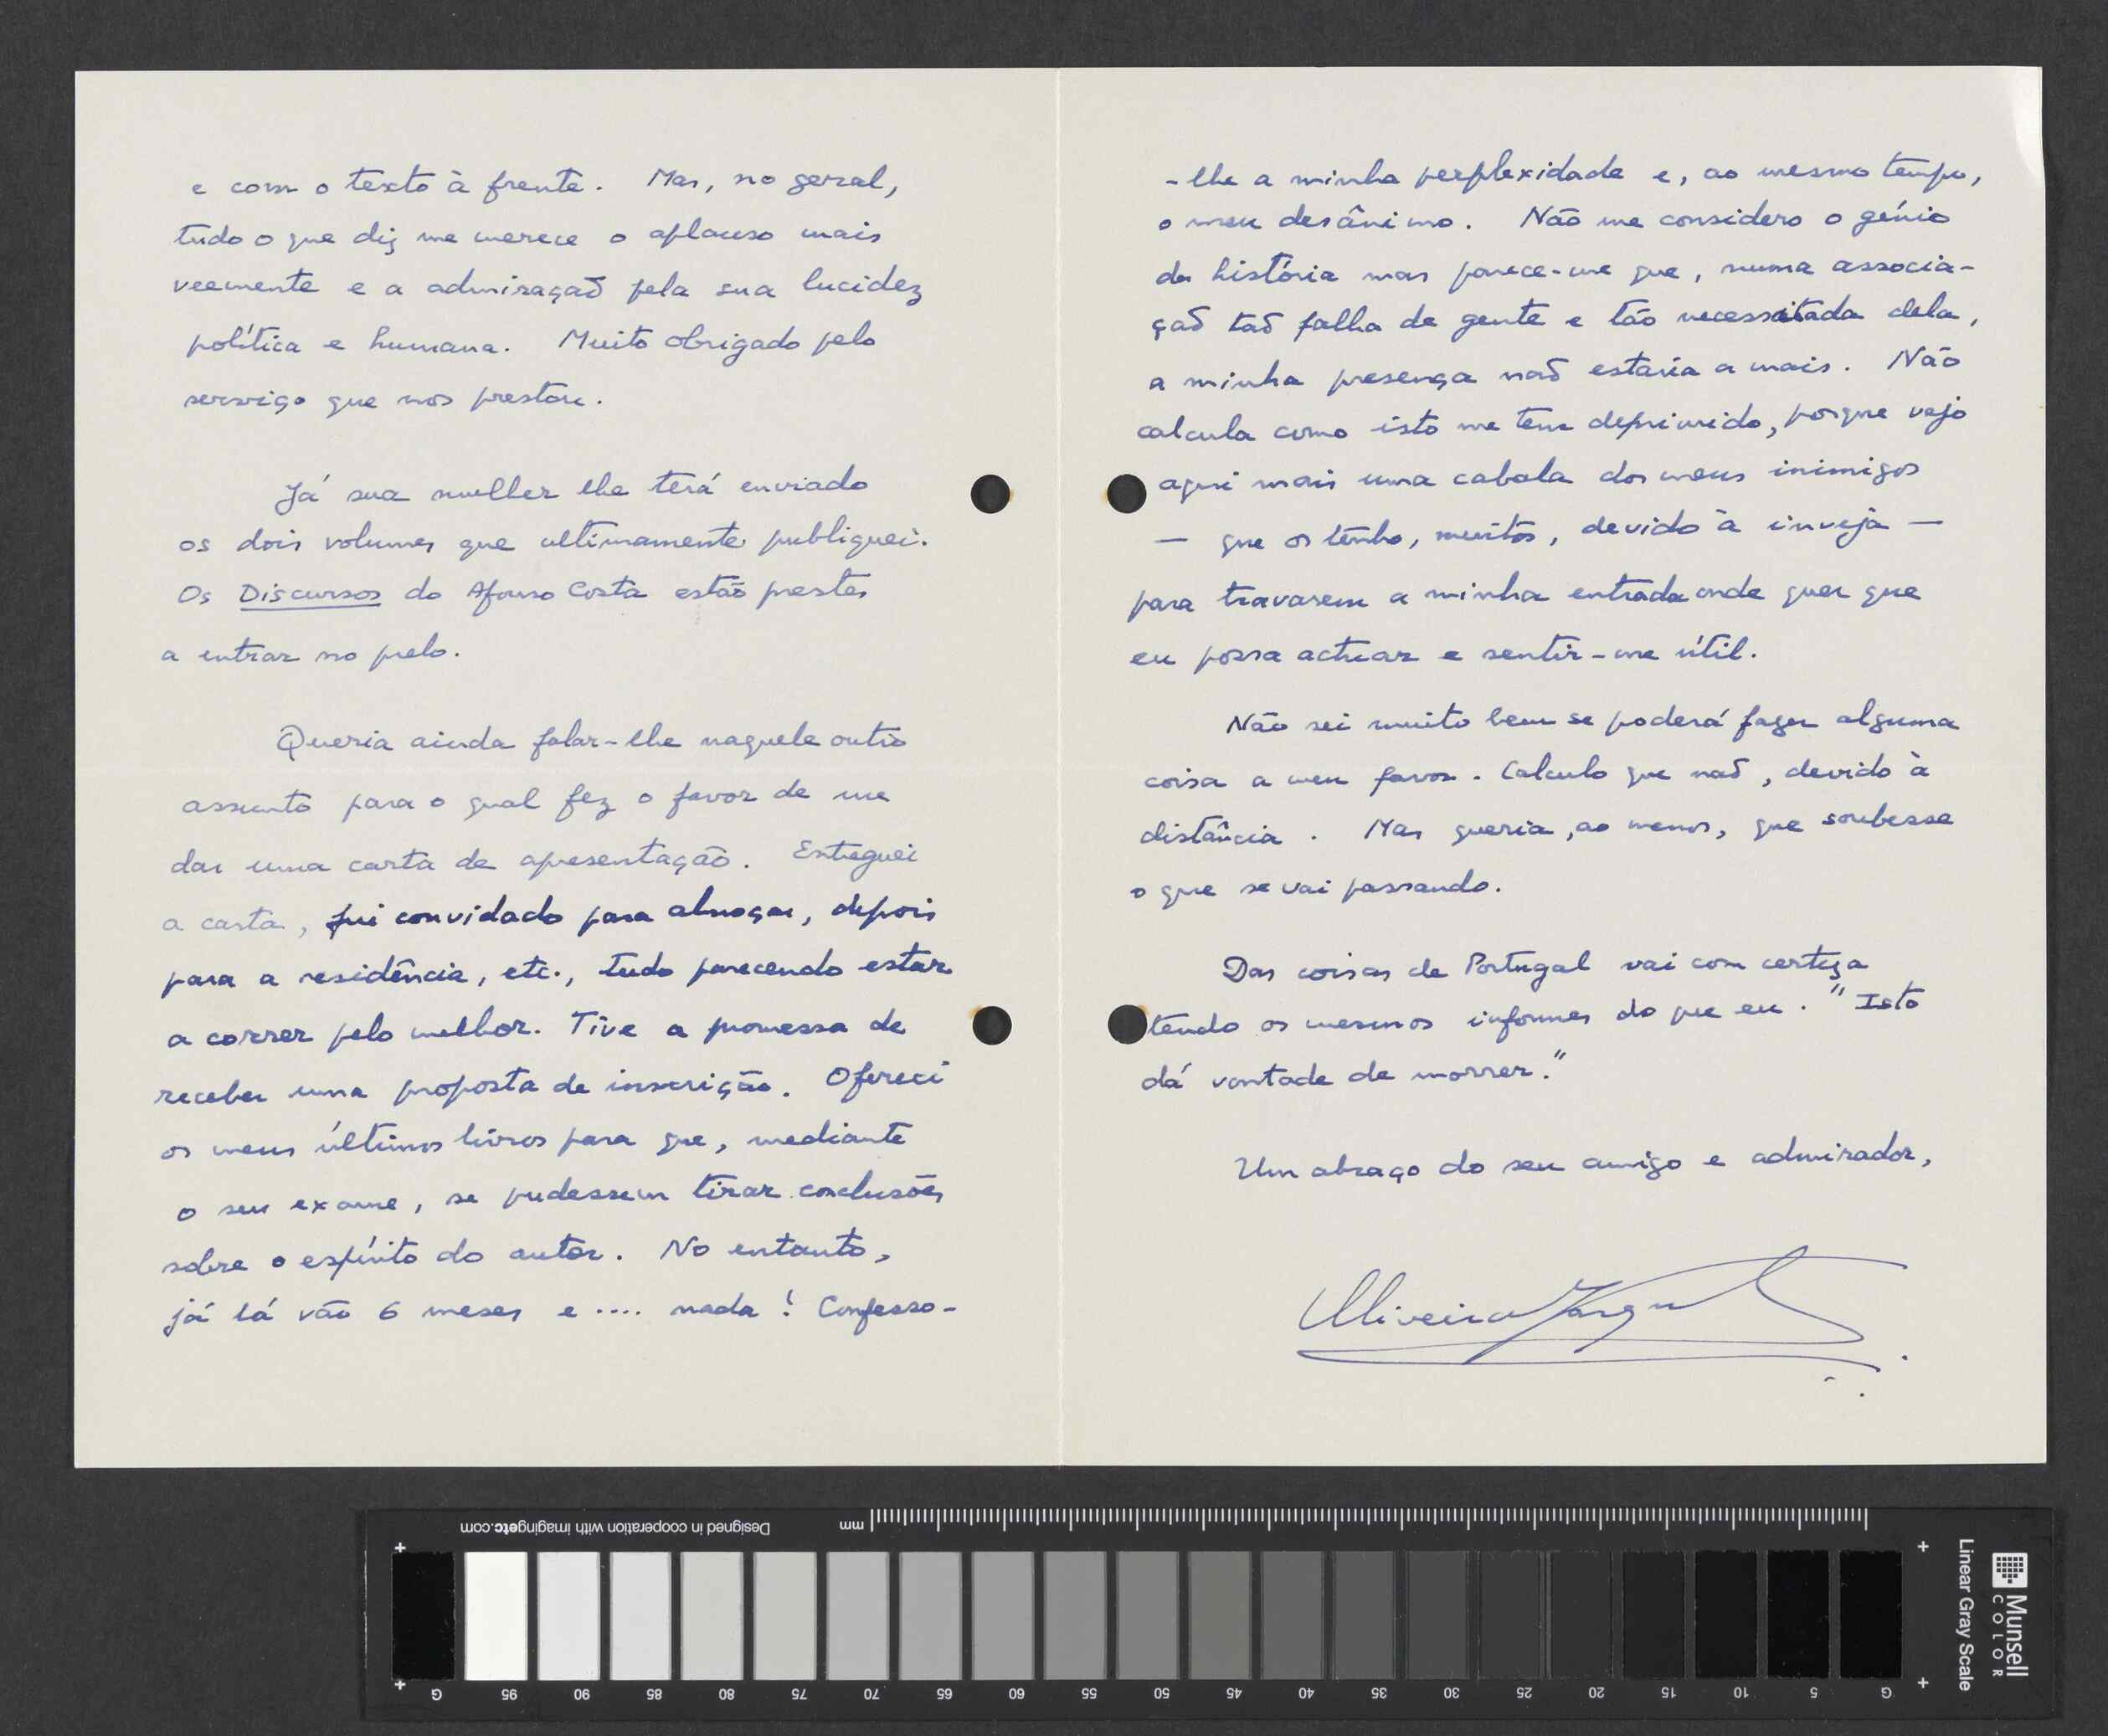 e com o texto à frente. Mas, no geral,
tudo o que diz me merece o aplauso mais
veemente e a admiração pela sua lucidez
política e humana. Muito obrigado pelo
serviço que nos prestou.
Já sua mulher lhe terá enviado
os dois volumes que ultimamente publiquei.
Os Discursos do Afonso Costa estão prestes
a entrar no prelo.
Queria ainda falar-lhe naquele outro
assunto para o qual fez o favor de me
dar uma carta de apresentação. Entreguei
a carta, fui convidado para almoçar, depois
para a residência, etc., tudo parecendo estar
a correr pelo melhor. Tive a promessa de
receber uma proposta de inscrição. Ofereci
os meus últimos livros para que, mediante
o seu exame, se pudessem tirar conclusões
sobre o espírito do autor. No entanto,
já lá vão 6 meses e .... nada! Confesso-
-lhe a minha perplexidade e, ao mesmo tempo,
o meu desânimo. Não me considero o génio
da história mas parece-me que, numa associa-
ção tão falha de gente e tão necessitada dela,
a minha presença não estaria a mais. Não
calcula como isto me tem deprimido, porque vejo
aqui mais uma cabala dos meus inimigos
— que os tenho, muitos, devido à inveja —
para travarem a minha entrada onde quer que
eu possa actuar e sentir-me útil.
Não sei muito bem se poderá fazer alguma
coisa a meu favor. Calculo que não, devido à
distância. Mas queria, ao menos, que soubesse
o que se vai passando.
Das coisas de Portugal vai com certeza
tendo os mesmos informes do que eu. "Isto
dá vontade de morrer."
Um abraço do seu amigo e admirador,
Oliveira Marques
Designed in cooperation with imagingetc.com
mm
Munsell
COLOR
Linear Gray Scale
G 95 90 85 80 75 70 65 60 55 50 45 40 35 30 25 20 15 10 5 G